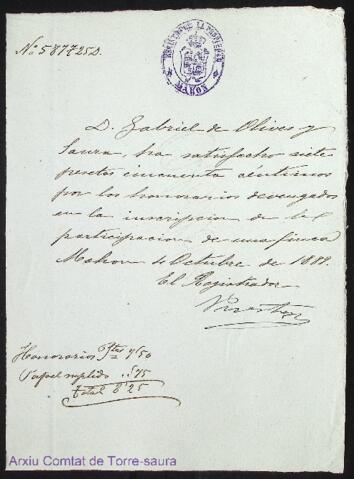 REGISTRO DE LA PROPIEDAD
MAHON
Nº 5877250.
D. Gabriel de Olives y
Saura, ha satisfecho siete
pesetas cincuenta céntimos
por los honorarios devengados
en la inscripcion de la
participacion de una finca
Mahon 4 Octubre de 1888.
El Registrador
Honorarios Ptas 7'50
Papel suplido " '75
total 8'25
Arxiu Comtat de Torre-saura